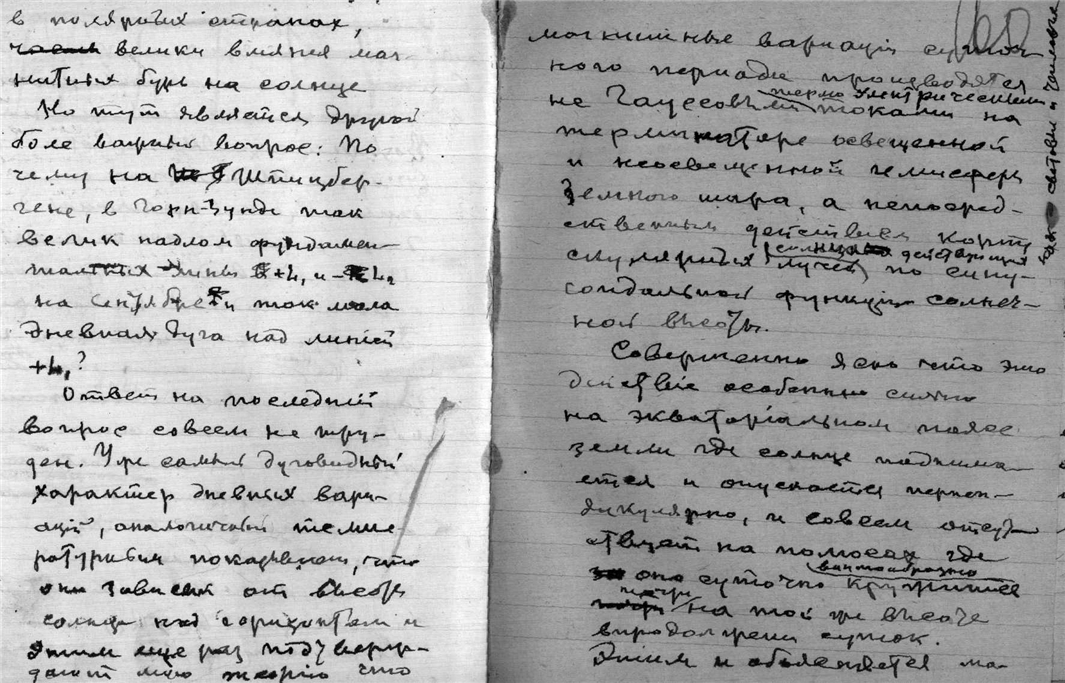 в полярных странах,
велики влияния маг-
нитных бурь на солнце
Но тут является другой
боле важный вопрос: По
чему на Шпицбер-
гене, в Горн-Зунде так
велик надлом фундамен-
тальных линий +L, и -L,
на Сентябре и так мала
Дневная дуга над линией
+L,?
Ответ на последний
вопрос совсем не тру-
ден. Уже самый дуговидный
характер дневных вари-
аций, аналогичный темпе-
ратурным показывает, что
они зависят от высоты
солнца над горизонтом и
этим еще раз подтверж-
дают мою теорию что
160
магнитные вариации суточ
ного периода производятся
термо электрическими
не Гауссовыми токами на
терминаторе освещенной
и неосвещенной гемисферы
Земного шара, а непосред-
ственным действием корпу
солнца действующих
скулярных лучей по сину-
соидальной функции солнеч-
ной высоты.
Совершенно ясно что это
Действие особенно сильно
на экваториальном поясе
земли где солнце поднима-
ется и опускается перпен-
дикулярно, и совсем отсут
ствует на полюсах где
винтообразно
оно суточно кружится
почти
на той же высоте
впродолжении суток.
Этим и объясняется ма-
световые и тепловые